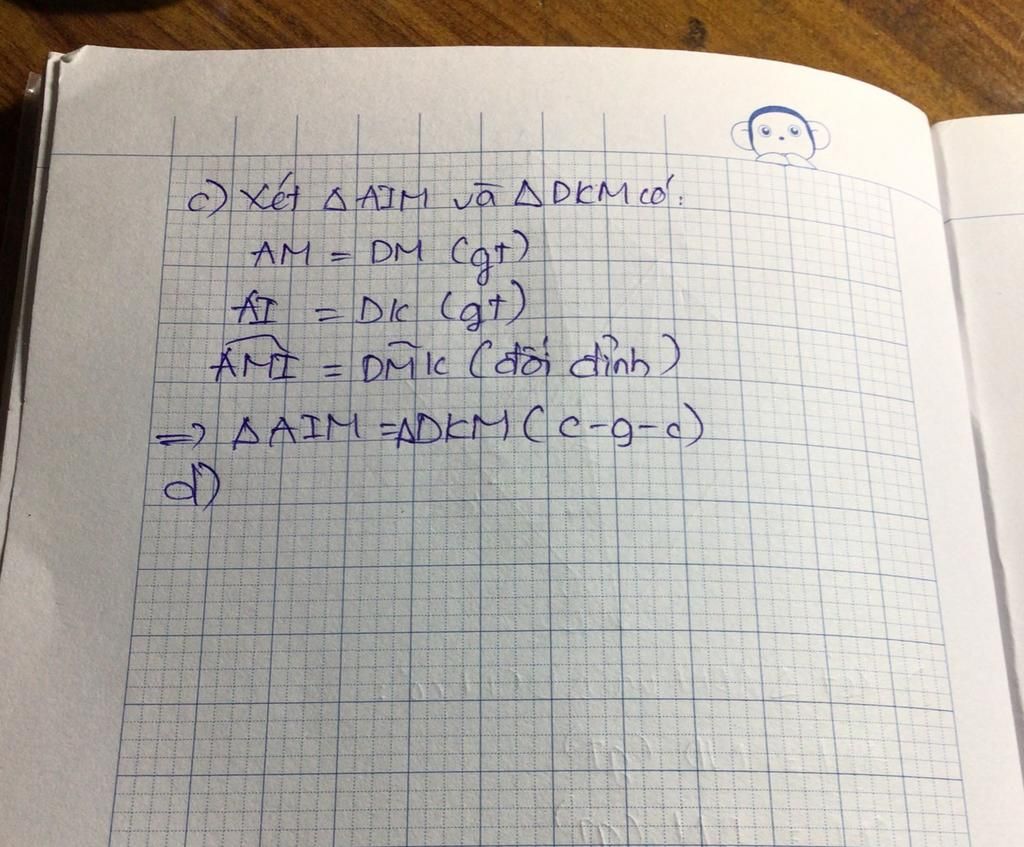 c) Xét Δ AIM và Δ DKM có:
AM = DM (gt)
AI = DK (gt)
AMI = DMK (đối đỉnh)
=> Δ AIM = Δ DKM ( c-g-c)
d)